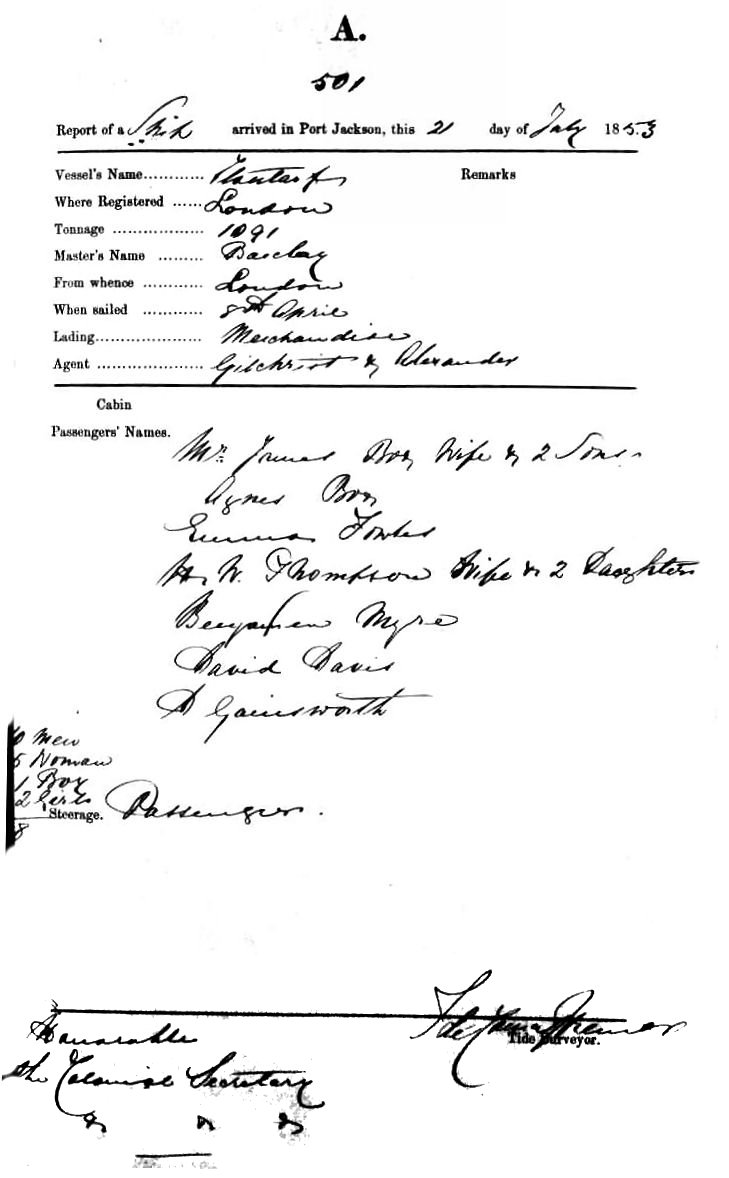 A.
501
Report of a Ship arrived in Port Jackson, this 21 day of July 1853
Vessel's Name............ Remarks
Where Registered ...... London
Tonnage .................. 1091
Master's Name ......... Barclay
From whence ............ London
When sailed ............ 8th April
Lading..................... Merchandise
Agent ..................... Gilchrist & Alexander
Cabin
Passengers' Names.
Mr. James Boy Wife & 2 Sons
Agnes Boy
Emma Fowles
H. W. Thompson Wife & 2 Daughters
Benjamin Myre
David Davis
D Gainsworth
Men
5 Woman
1 Boy
2 Girls
Steerage. Passengers.
8
Tide Surveyor.
Honorable
the Colonial Secretary
& & &